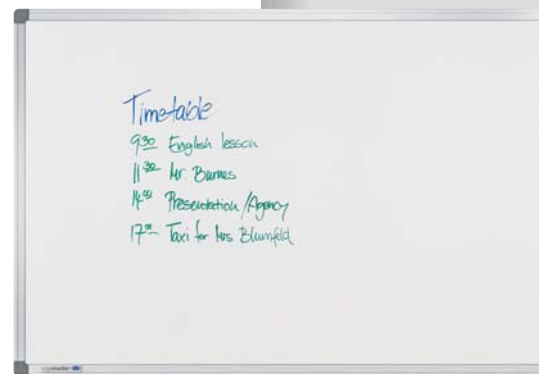 Timetable
9³⁰ English lesson
11³⁰ Mr. Burnes
14⁰⁰ Presentation/Agency
17⁰⁰ Taxi for Mrs Blumfeld
legamaster